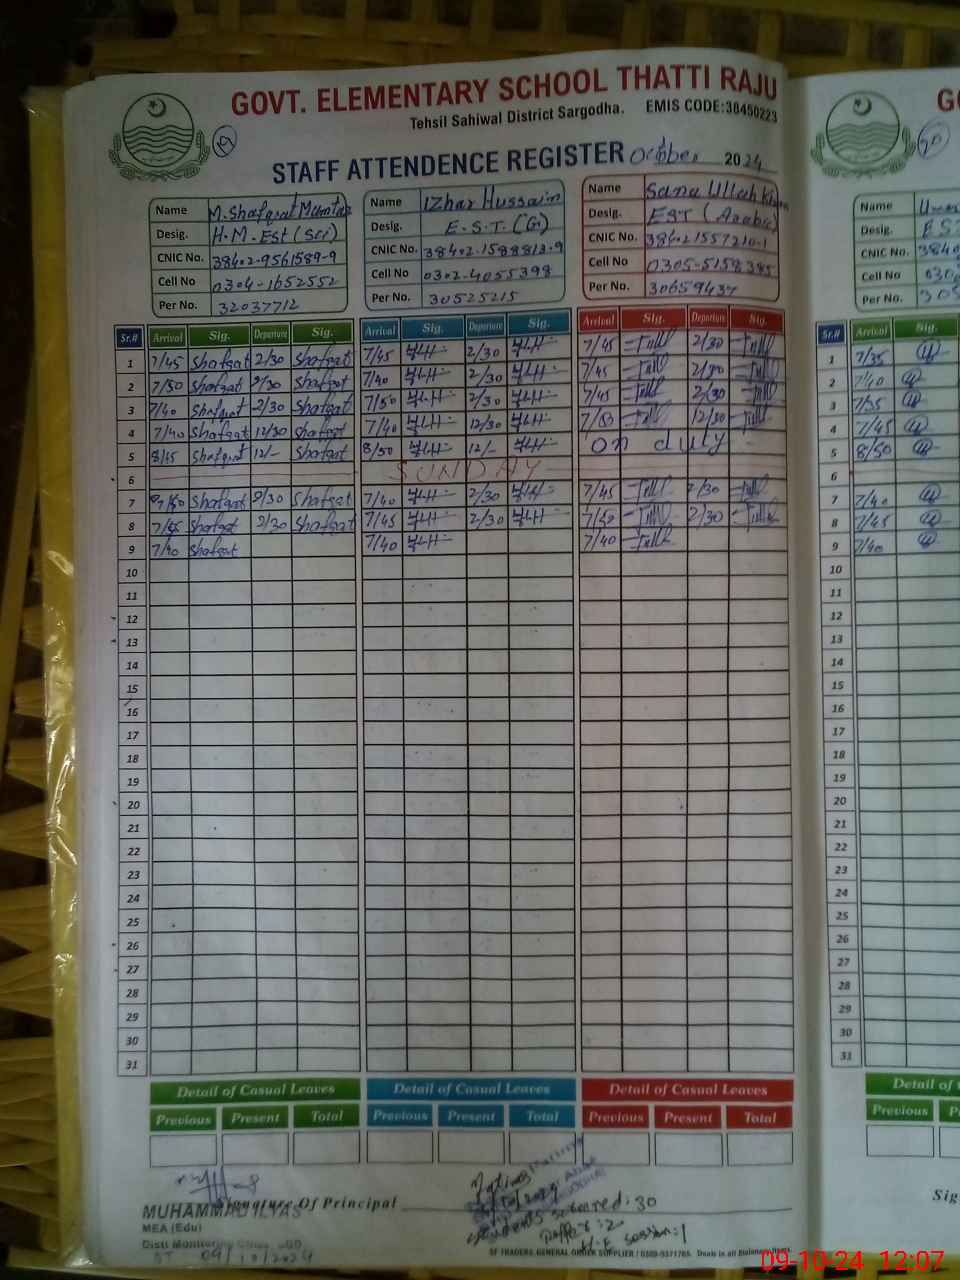 GOVT. ELEMENTARY SCHOOL THATTI RAJU
Tehsil Sahiwal District Sargodha. EMIS CODE:38450223
STAFF ATTENDENCE REGISTER October 2024
Name M. Shafqat Mumtaz
Desig. H.M. Est (Sci)
CNIC No. 38402-9561589-9
Cell No 0304-1652552
Per No. 32037712
Name Izhar Hussain
Desig. E.S.T. (G)
CNIC No. 38402-1588813-9
Cell No 0302-4055398
Per No. 30525215
Name Sana Ullah Khan
Desig. EST (Arabic)
CNIC No. 384021557210-1
Cell No 0305-5158385
Per No. 30659437
Sr.# Arrival Sig. Departure Sig. Arrival Sig. Departure Sig. Arrival Sig. Departure Sig.
1 7/45 Shafqat 2/30 Shafqat 7/45 2/30 7/45 2/30
2 7/50 Shafqat 2/30 Shafqat 7/40 2/30 7/45 2/30
3 7/40 Shafqat 2/30 Shafqat 7/50 2/30 7/45 2/30
4 7/40 Shafqat 12/30 Shafqat 7/40 12/30 7/50 12/30
5 8/45 Shafqat 12/- Shafqat 8/50 12/- on duty
6 SUNDAY
7 7/50 Shafqat 2/30 Shafqat 7/40 2/30 7/45 2/30
8 7/45 Shafqat 2/30 Shafqat 7/45 2/30 7/50 2/30
9 7/40 Shafqat 7/40 7/40
10
11
12
13
14
15
16
17
18
19
20
21
22
23
24
25
26
27
28
29
30
31
Detail of Casual Leaves Detail of Casual Leaves Detail of Casual Leaves
Previous Present Total Previous Present Total Previous Present Total
Signature Of Principal
MUHAMMAD ILYAS
MEA (Edu)
Distt Monitoring
09/10/2024
Students screened: 30
Reffer: 2
H.E session: 1
SF TRADERS GENERAL ORDER SUPPLIER
G
Name
Desig. EST
CNIC No. 3840
Cell No 030
Per No. 305
Sr.# Arrival Sig.
1 7/35
2 7/40
3 7/35
4 7/45
5 8/50
6
7 7/40
8 7/45
9 7/40
10
11
12
13
14
15
16
17
18
19
20
21
22
23
24
25
26
27
28
29
30
31
Detail of
Previous P
Sig
09-10-24 12:07